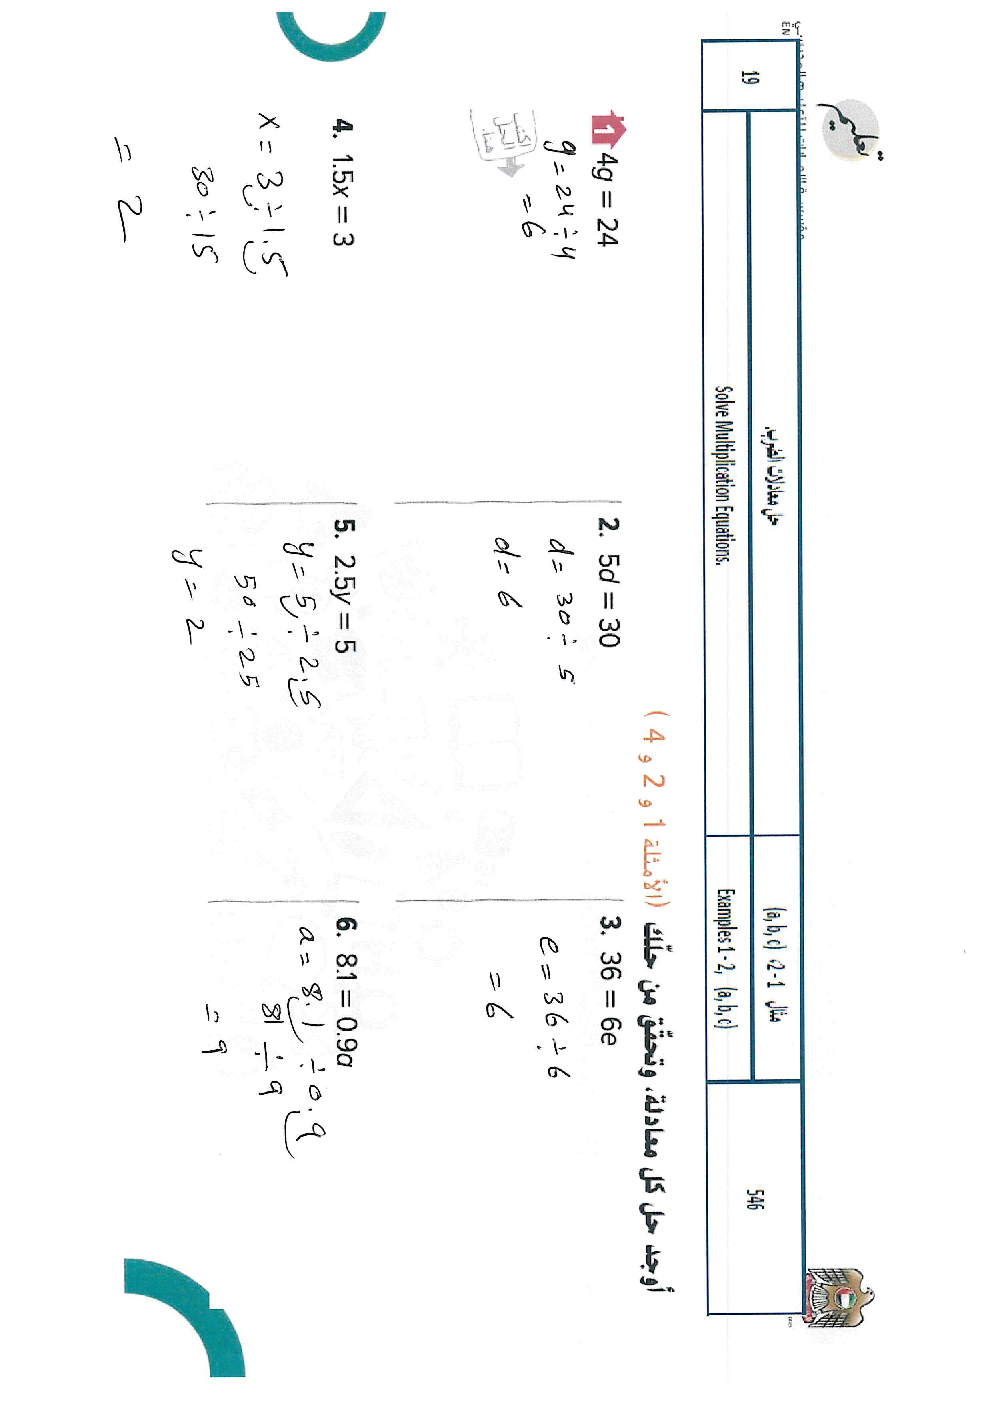 EN
تعليم
19
حل معادلات الضرب.
Solve Multiplication Equations.
مثال 1-2، (a, b, c)
Examples 1-2, (a, b, c)
546
أوجد حل كل معادلة، وتحقّق من حلّك (الأمثلة 1 و 2 و 4)
1 4g = 24
g = 24 ÷ 4
= 6
2. 5d = 30
d = 30 ÷ 5
d = 6
3. 36 = 6e
e = 36 ÷ 6
= 6
4. 1.5x = 3
x = 3 ÷ 1.5
30 ÷ 15
= 2
5. 2.5y = 5
y = 5 ÷ 2.5
50 ÷ 25
y = 2
6. 8.1 = 0.9a
a = 8.1 ÷ 0.9
81 ÷ 9
= 9